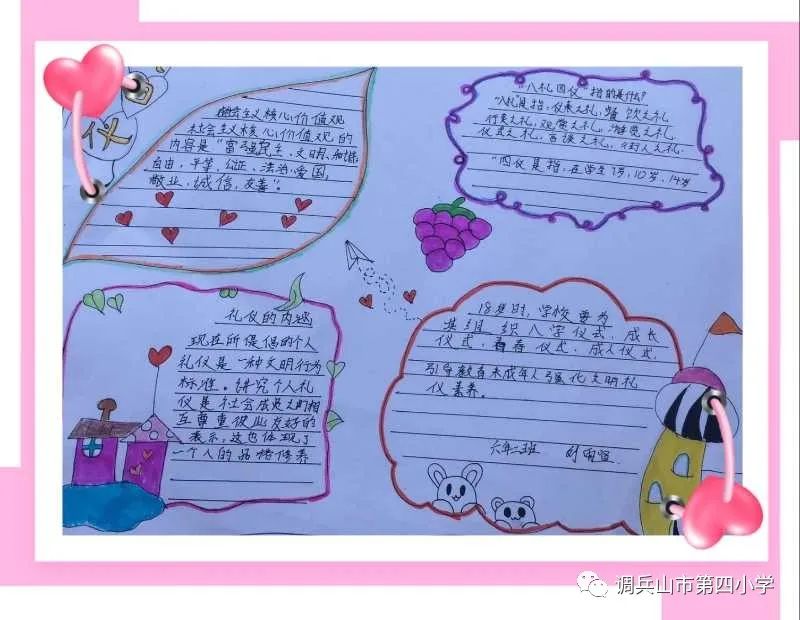 仪
社会主义核心价值观
社会主义核心价值观的
内容是“富强民主、文明、和谐、
自由、平等、公正、法治、爱国、
敬业、诚信、友善”。
“八礼四仪”指的是什么?
“八礼是指:仪表之礼,餐饮之礼
行走之礼,观赏之礼,游览之礼
仪式之礼,言谈之礼,待人之礼.
“四仪是指,在学生7岁,10岁,14岁
礼仪的内涵
现在所提倡的个人
礼仪是一种文明行为
标准。讲究个人礼
仪是社会成员之间相
互尊重彼此友好的
表示,这也体现了
一个人的品格修养
18岁时,学校要为
其组织入学仪式,成长
仪式,青春仪式,成人仪式,
引导教育未成年人强化文明礼
仪素养。
六年二班
调兵山市第四小学